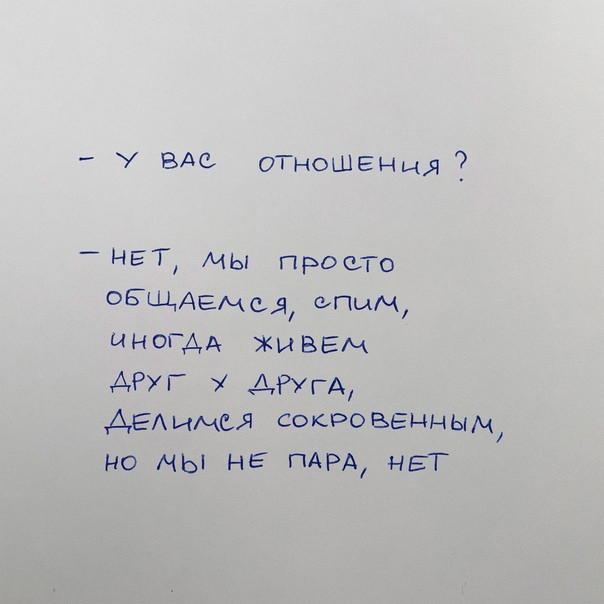 - У ВАС ОТНОШЕНИЯ?
- НЕТ, МЫ ПРОСТО
ОБЩАЕМСЯ, СПИМ,
ИНОГДА ЖИВЕМ
ДРУГ У ДРУГА,
ДЕЛИМСЯ СОКРОВЕННЫМ,
НО МЫ НЕ ПАРА, НЕТ